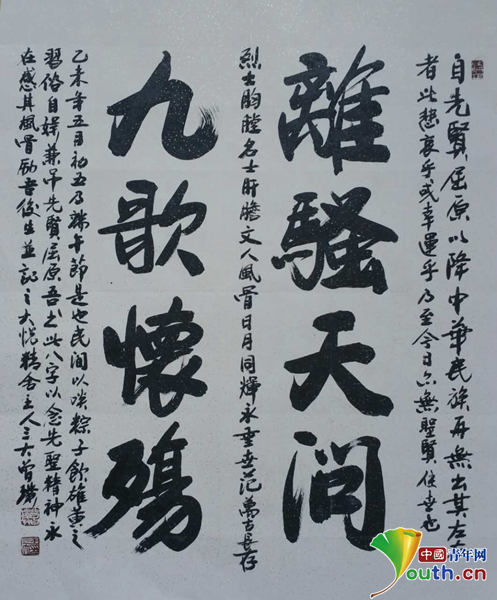 自先賢屈原以降中華民族再無出其左右
者此悲哀乎或幸運乎乃至今日亦無聖賢住世也
離騷天問
烈士胸膛名士肝膽文人風骨日月同輝永垂世範萬古長存
九歌懷殤
乙未年五月初五乃端午節是也民间以啖粽子飲雄黄之
習俗自娱兼吊先賢屈原吾书此八字以念先聖精神永
在感其風骨励吾後生並記之大悦精舍主人三大曾
中國青年网
Youth.cn